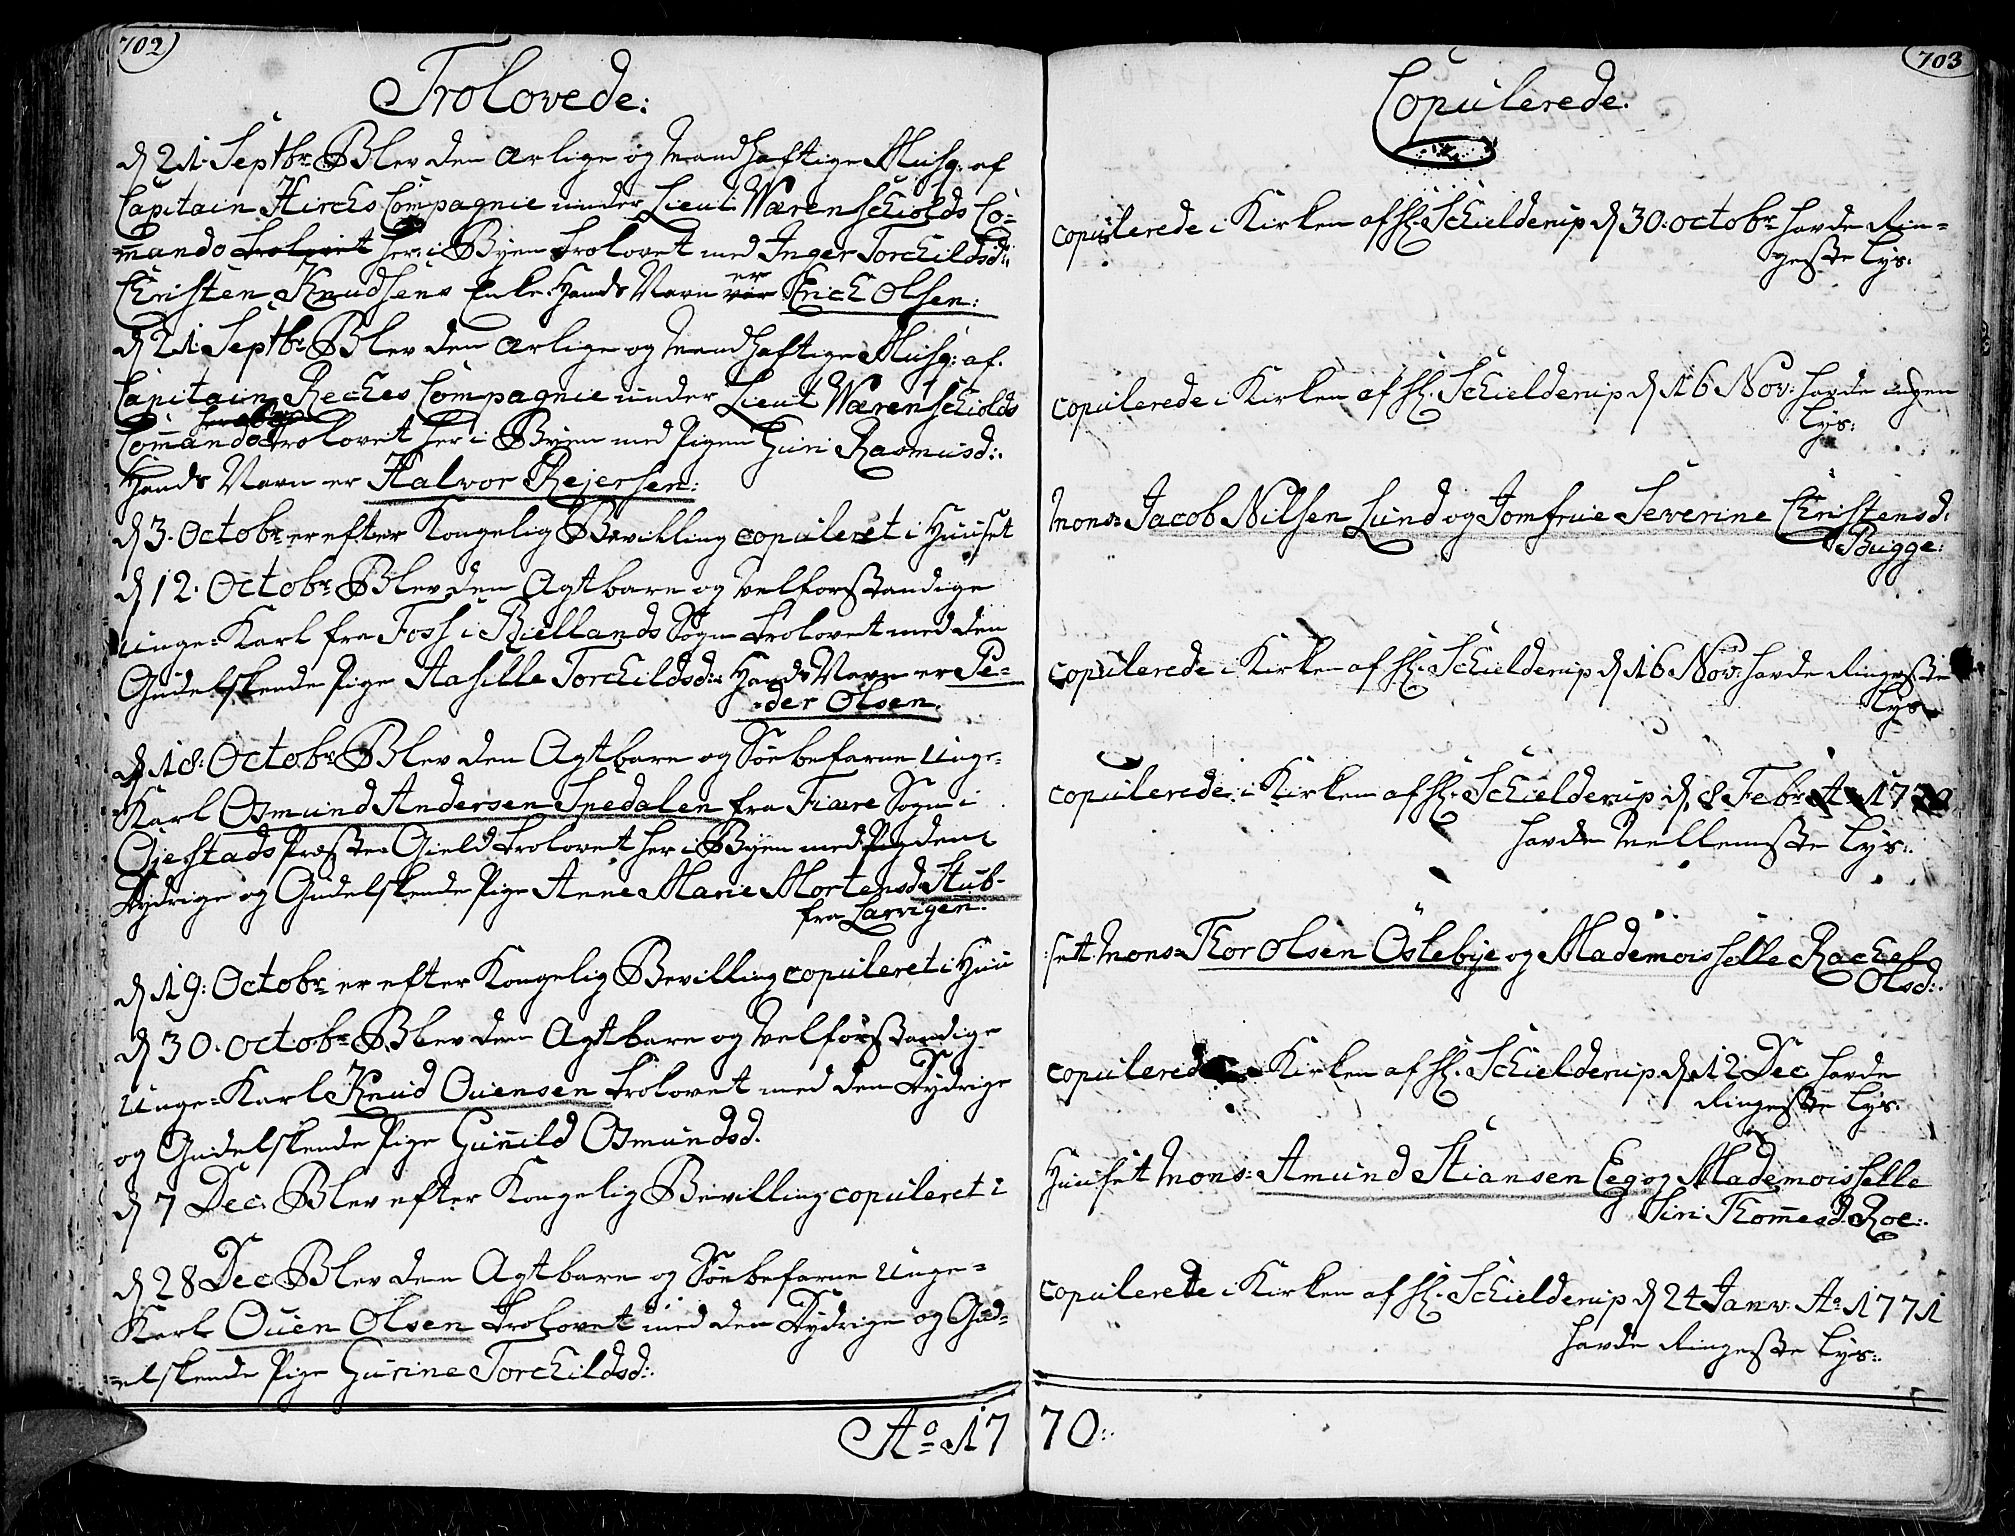 702)
Trolovede:
d 21. Septbr: Blev den ærlige og Mandhaftige Musq: af
Capitain Hirchs Compagnie under Lieut: Wærenschiolds Co=
mando trolovet her i Byen trolovet med Inger Torchildsd:
er
Christen Knudsens Enke. Hands Navn var Erich Olsen:
d 21. Septbr: Blev den ærlige og Mandhaftige Musq: af.
Capitain Reches Compagnie under Lieut Wærenschiolds
Commando trolovet her i Byen med Pigen Guri Rasmusd:.
Hands Navn er Halvor Rejersen:
d 3. Octobr: er efter Kongelig Bevilling copuleret i Huuset
d 12. Octobr: Blev den Agtbare og Velforstandige
unge=Karl fra Foss i Biellands Sogn trolovet med den
Gudelskende Pige Aasille Torchildsd:. Hands Navn er Pe=
=der Olsen.
d 18: Octobr: Blev den Agtbare og Søebefarne Unge=
Karl Osmund Andersen Spedalen fra Fiære Sogn i
Øjestads Præste=Gield trolovet her i Byen med den
Dydrige og Gudelskende Pige Anne Marie Mortensd Stub-
fra Larvigen.
d 19: Octobr: er efter Kongelig Bevilling copuleret i Huu
d 30. Octobr: Blev den Agtbare og Velforstandige
unge=Karl Knud Ouensen trolovet med den Dydrige
og Gudelskende Pige Gunnild Osmundsd.
d 7 Dec: Blev efter Kongelig Bevilling copuleret i
d 28 Dec: Blev den Agtbare og Søebefarne Unge=
Karl Ouen Olsen trolovet med den Dydrige og Gud=
=elskende Pige Gurine Torchildsd:.
Ao 17
703
Copulerede.
copulerede i Kirken af H. Schielderup d 30. octobr: havde Rin=
geste Lys:
copulerede i Kirken af H. Schielderup d 16 Nov: havde ingen
Lys:
Mons: Jacob Nilsen Lund og Jomfrue Severine Christensd.
Bugge:
copulerede i Kirken af H. Schielderup d 16 Nov: havde Ringeste
Lys
copulerede i Kirken af H. Schielderup d. 8 Febr: Ao 1770
havde Mellemste Lys:.
:sett. Mons: Thor Olsen Østebye og Mademoisselle Rachel
Olsd:.
copulered Kirken af H. Schielderup. d. 12 Dec havde
Ringeste Lys.
Huuset Mons: Amund Stiansen Eeg og Mademoisselle
Siri Thommesd. Roe:.
copulerede i Kirken af H. Schielderup d 24 Janv. Ao 1771
havde Ringeste Lys:.
70:.